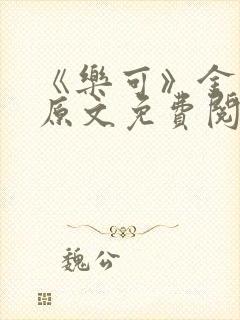 《樂可》全
原文免費閱
魏公